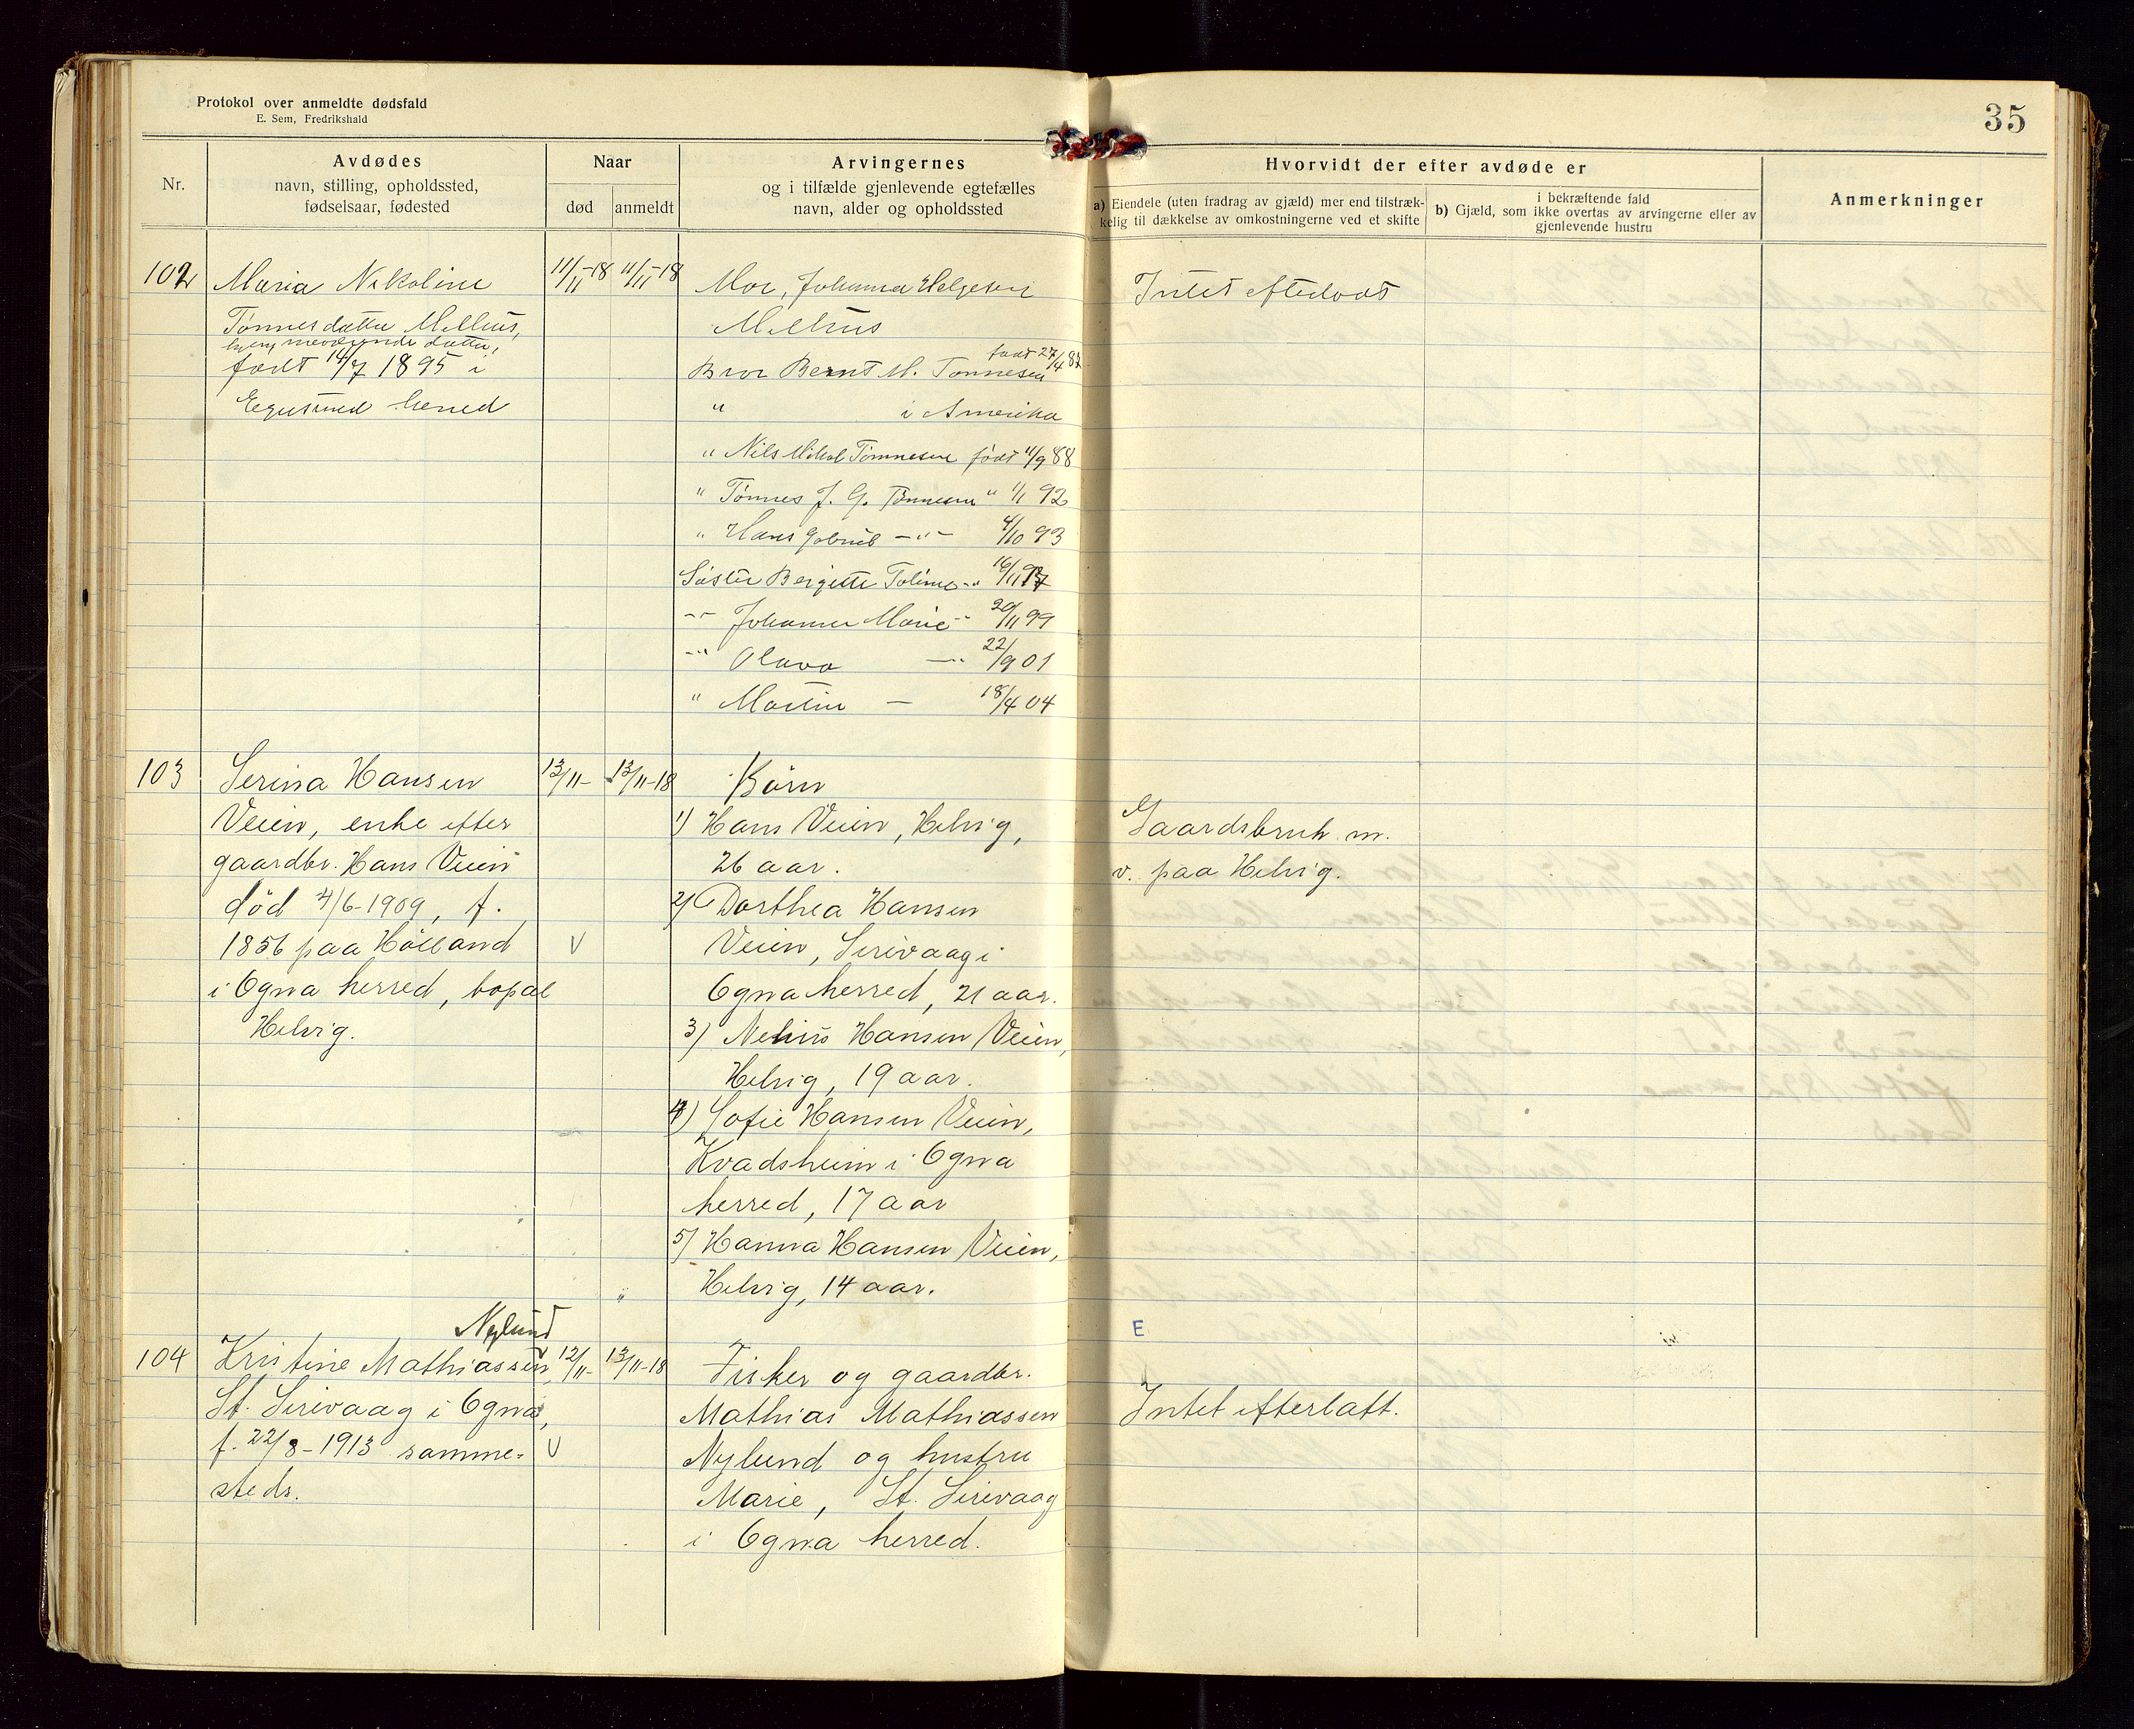 Protokol over anmeldte dødsfald
E. Sem, Fredrikshald
35
Nr.
Avdødes
navn, stilling, opholdssted,
fødselsaar, fødested
Naar
død
anmeldt
Arvingernes
og i tilfælde gjenlevende egtefælles
navn, alder og opholdssted
Hvorvidt der efter avdøde er
a) Eiendele (uten fradrag av gjæld) mer end tilstræk-
kelig til dækkelse av omkostningerne ved et skifte
i bekræftende fald
b) Gjæld, som ikke overtas av arvingerne eller av
gjenlevende hustru
Anmerkninger
102
Maria Nikoline
Tønnesdatter Mellus,
hjemmeværende datter,
født 14/7 1895 i
Egersund herred
11/11-18
11/11-18
Mor, Johanna Helgesen
Mellus
født 27/4 87
Bror Bernt M. Tønnesen
" i Amerika
" Nils Mikal Tønnesen født 11/9 88
" Tønnes J. G. Tønnesen " 1/1 92
" Hans Gabriel -"- 4/10 93
Søster Bergette Toline -" 16/11 97
-"- Johanna Marie " 20/11 99
-"- Olava -"- 22/9 01
" Martin - 18/4 04
Intet efterladt
103
Serina Hansen
Veien, enke efter
gaardbr. Hans Veien
død 4/6-1909, f.
1856 paa Hølland
i Ogna herred, bopæl
Helvig.
13/11-
13/11-18
V
Børn
1) Hans Veien, Helvig,
26 aar.
2) Dorthea Hansen
Veien, Sirivaag i
Ogna herred, 21 aar.
3) Nelius Hansen Veien,
Helvig, 19 aar.
4) Sofie Hansen Veien,
Kvadsheim i Ogna
herred, 17 aar
5) Hanna Hansen Veien,
Helvig, 14 aar.
Gaardsbruk m.
v. paa Helvig.
104
Nylund
Kristine Mathiassen,
St. Sirevaag i Ogna,
f. 22/8-1913 samme-
steds.
12/11-
13/11-18
V
Fisker og gaardbr.
Mathias Mathiassen
Nylund og hustru
Marie, St. Sirevaag
i Ogna herred.
E
Intet efterlatt.